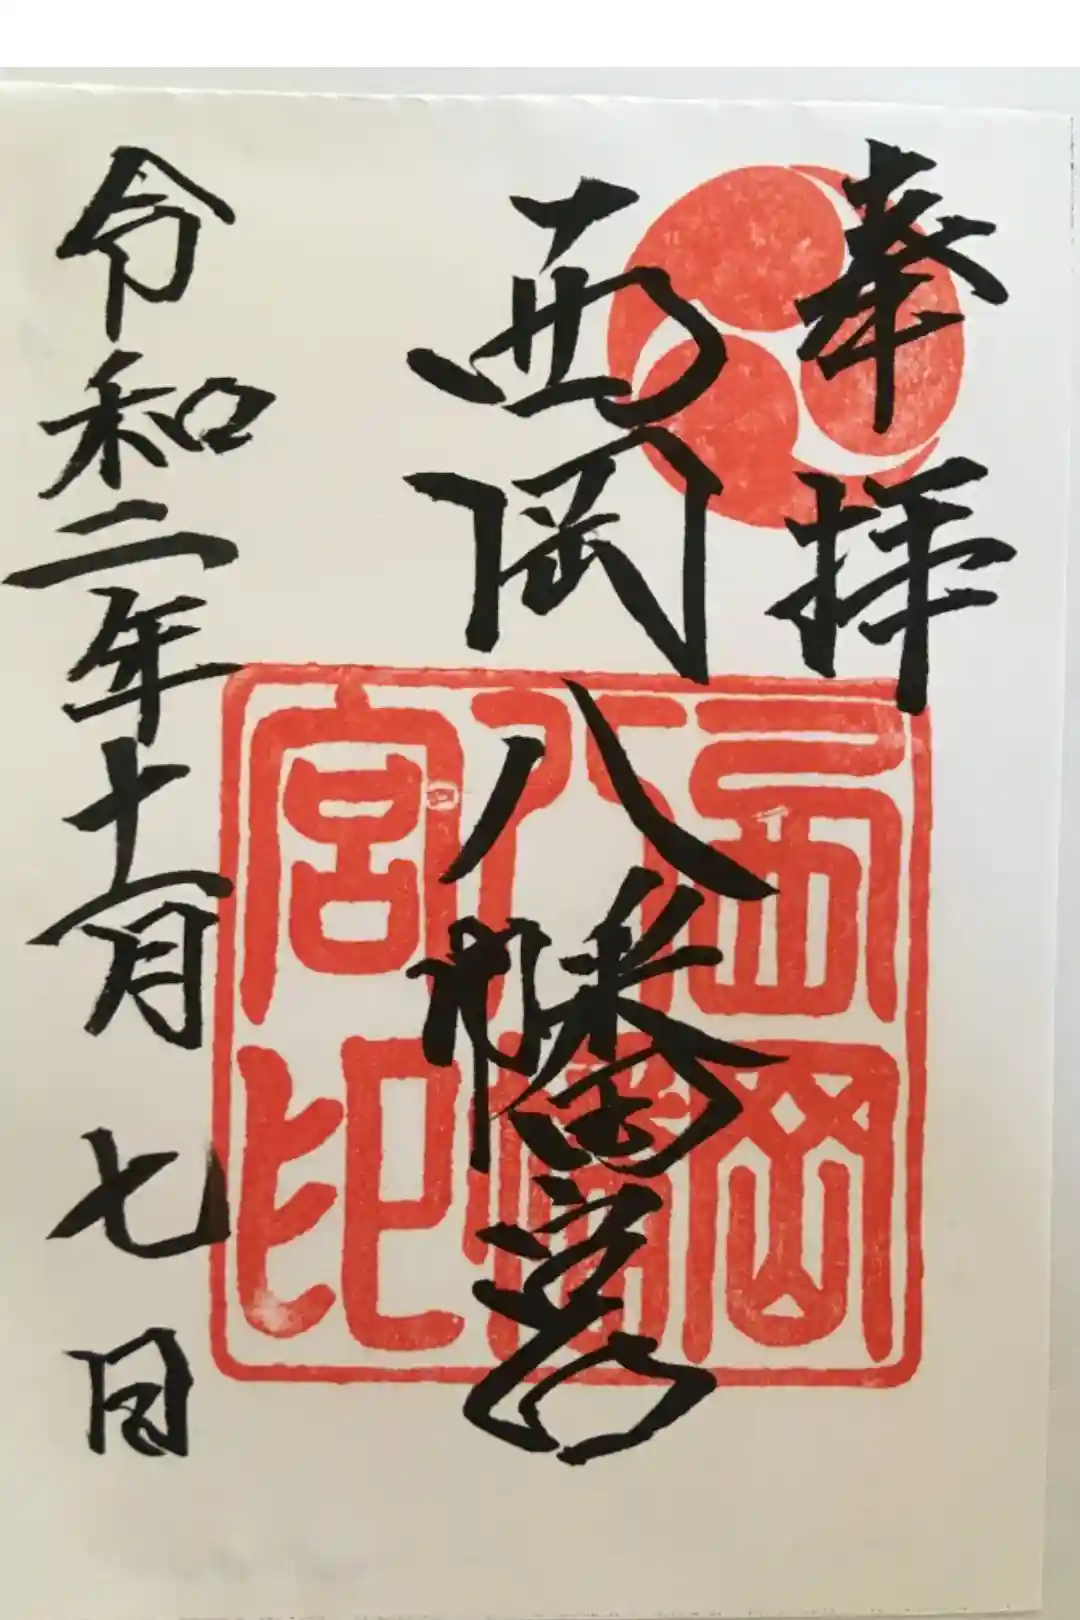 奉拝
西岡八幡宮
令和二年十一月七日
西岡
八幡
宮印